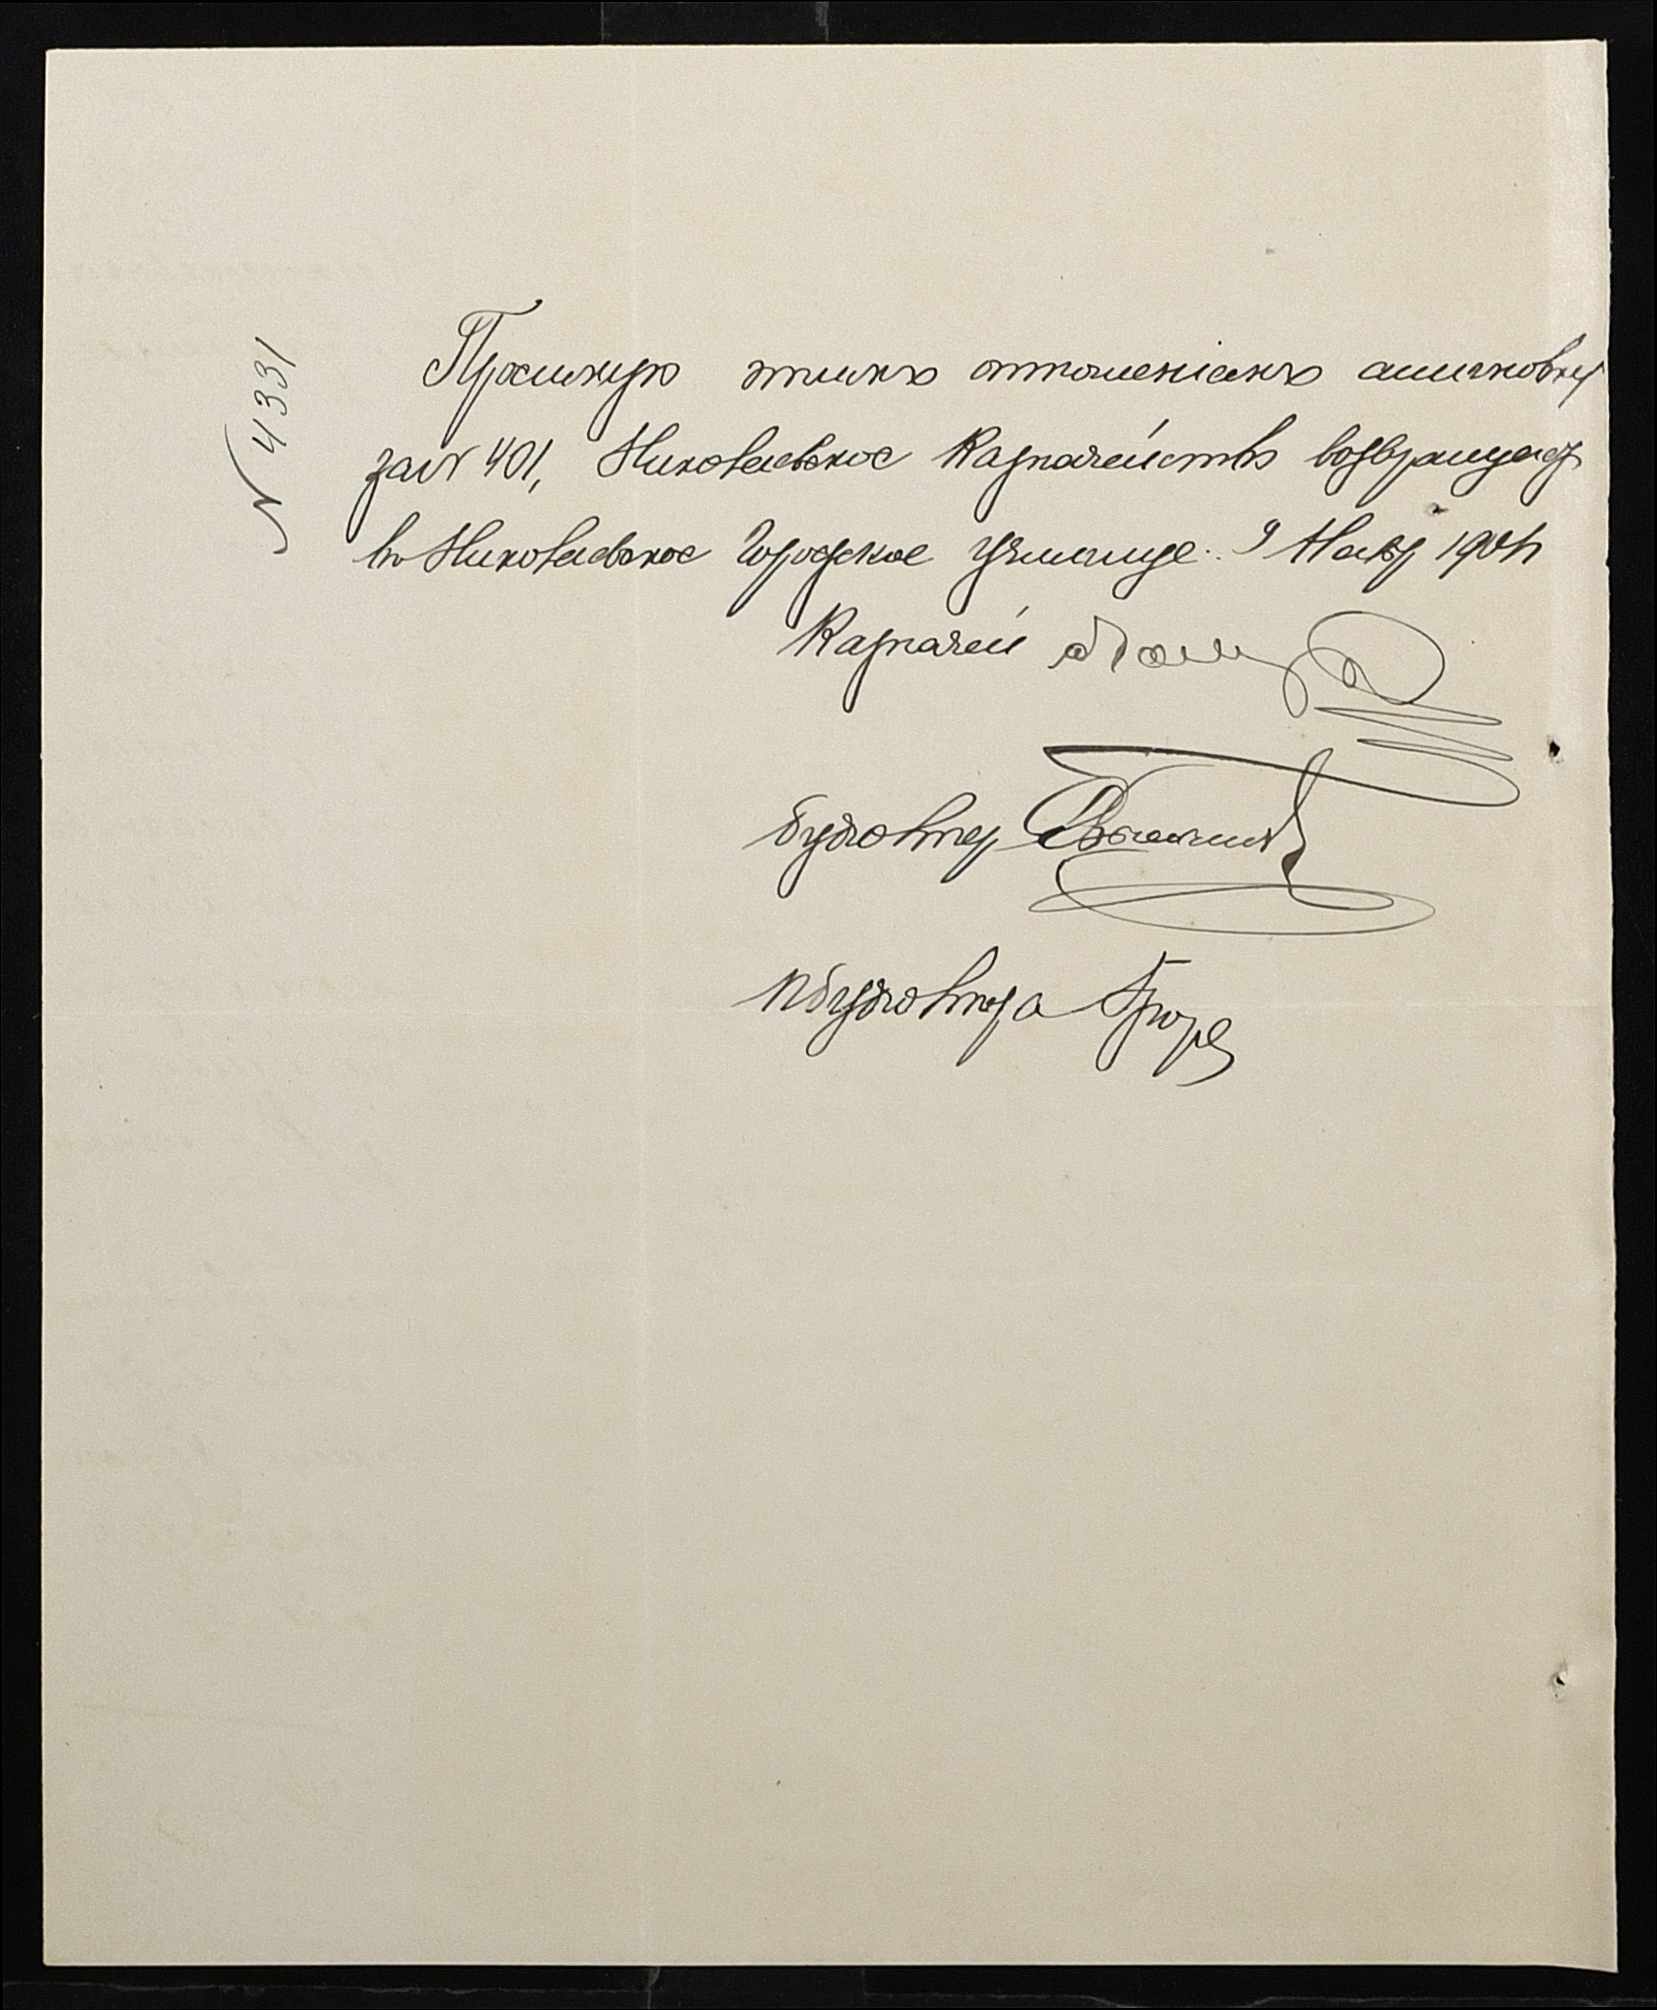 N 4331
Просимую этимъ отношеніемъ ассигновку
за N 401, Николаевское Казначейство возвращаетъ
въ Николаевское Городское училище. 9 Ноябр 1904
Казначей
Бухгалтер
пбухгалтера